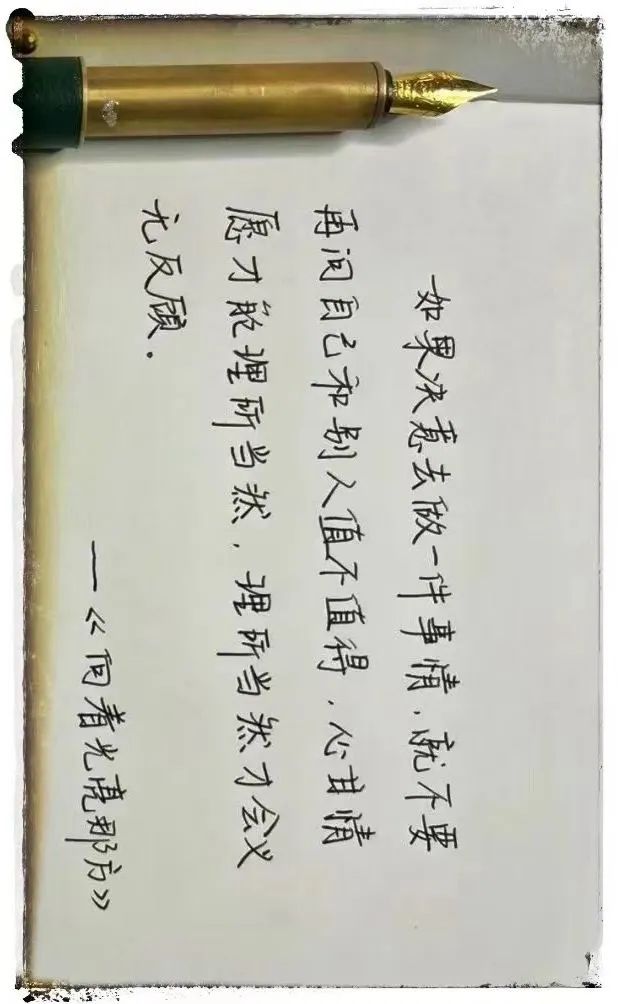 如果决意去做一件事情，就不要
再问自己和别人值不值得，心甘情
愿才能理所当然，理所当然才会义
无反顾．
—《向着光亮那方》